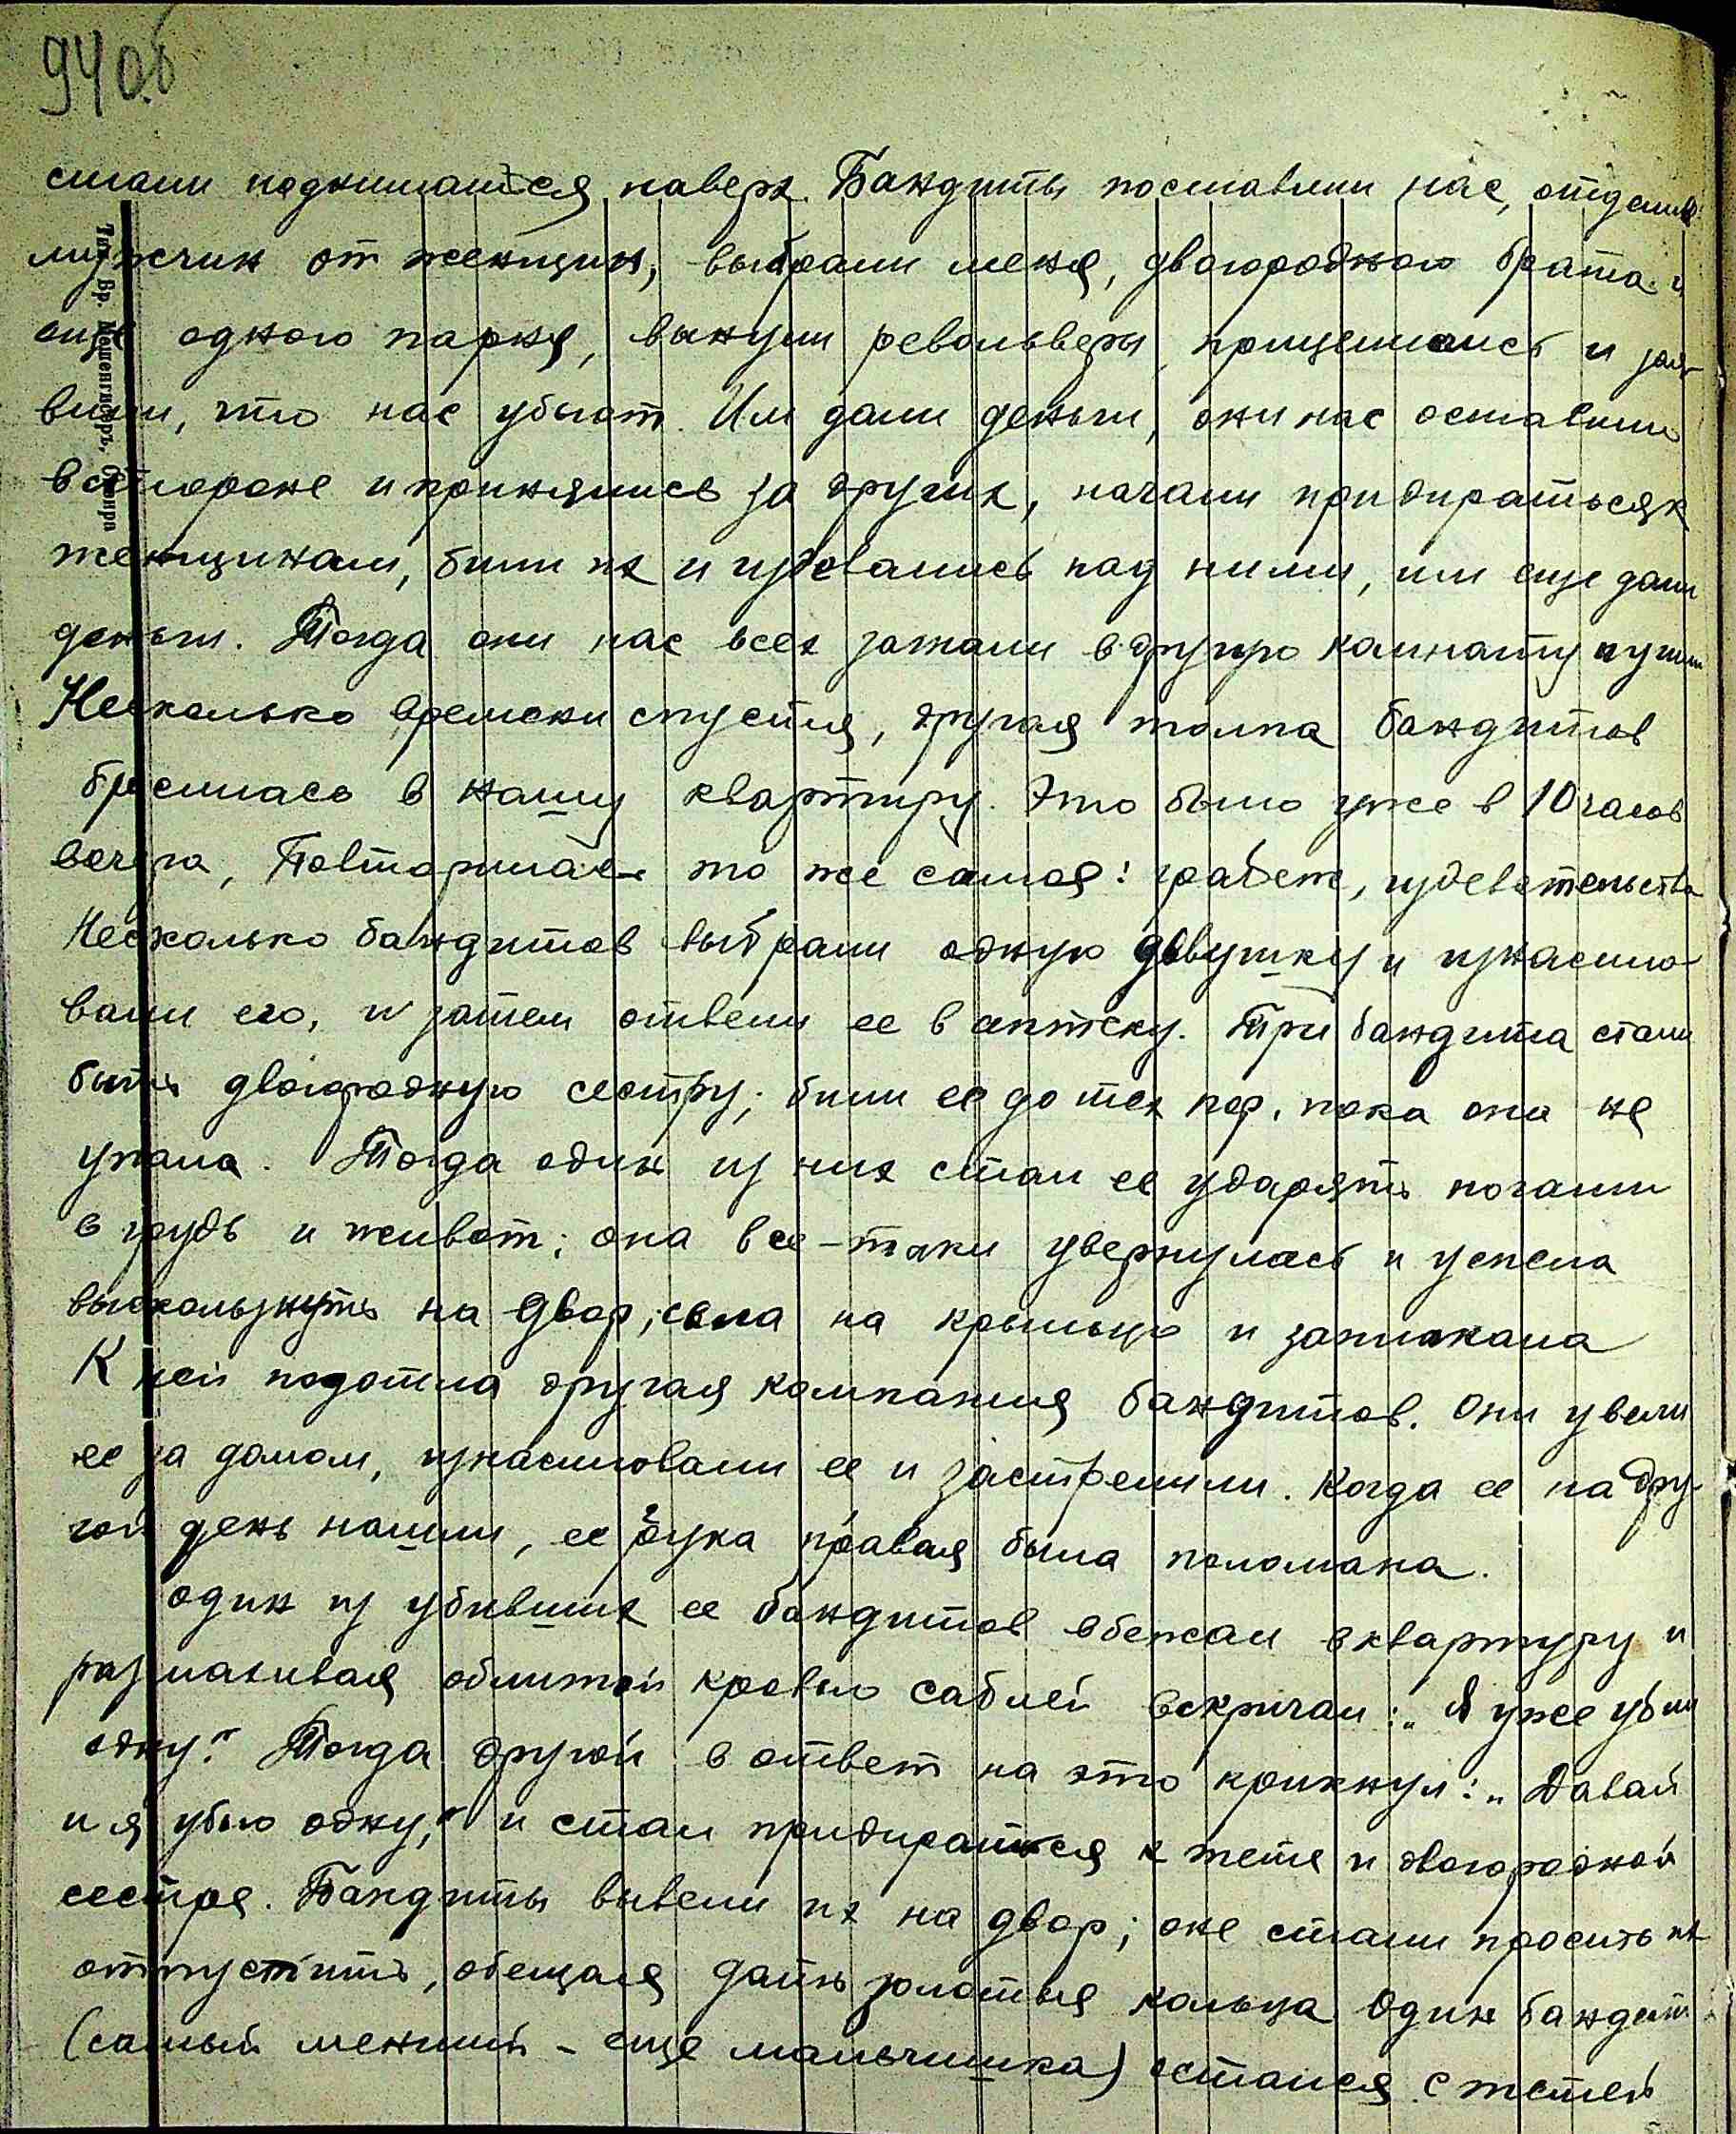 94об
стали подниматься наверх. Бандиты поставили нас, отделив
мужчин от женщин, выбрали меня, двоюродного брата и
еще одного парня, вынули револьверы, прицелились и зая-
вили, что нас убьют. Им дали деньги, они нас оставили
в стороне и принялись за других, начали придираться к
женщинам, били их и издевались над ними, им еще дали
деньги. Тогда они нас всех загнали в другую комнату и ушли
Несколько времени спустя, другая толпа бандитов
бросилась в нашу квартиру. Это было уже в 10 часов
вечера, Повторилась то же самое: грабеж, издевательства
Несколько бандитов выбрали одную девушку и изнасило-
вали его, и затем отвели ее в аптеку. Три бандита стали
бить двоюродную сестру; били ее до тех пор, пока она не
упала. Тогда один из них стал ее ударять ногами
в грудь и живот; она все-таки увернулась и успела
выскользнуть на двор, села на крыльцо и заплакала
К ней подошла другая компания бандитов. Они увели
ее за домом, изнасиловали ее и застрелили. Когда ее на дру-
гой день нашли, ее рука правая была поломана.
один из убивших ее бандитов вбежал в квартиру и
размахивая облитой кровью саблей вскричал: „Я уже убил
одну." Тогда другой в ответ на это крикнул: „Давай
и я убью одну," и стал придираться к тете и двоюродной
сестре. Бандиты вывели их на двор; оне стали просить их
отпустить, обещая дать золотыя кольца Один бандит
(самый менший - еще мальчишка) остался с тетей
Тип. Вр. Мешенгиссеръ, Сквира